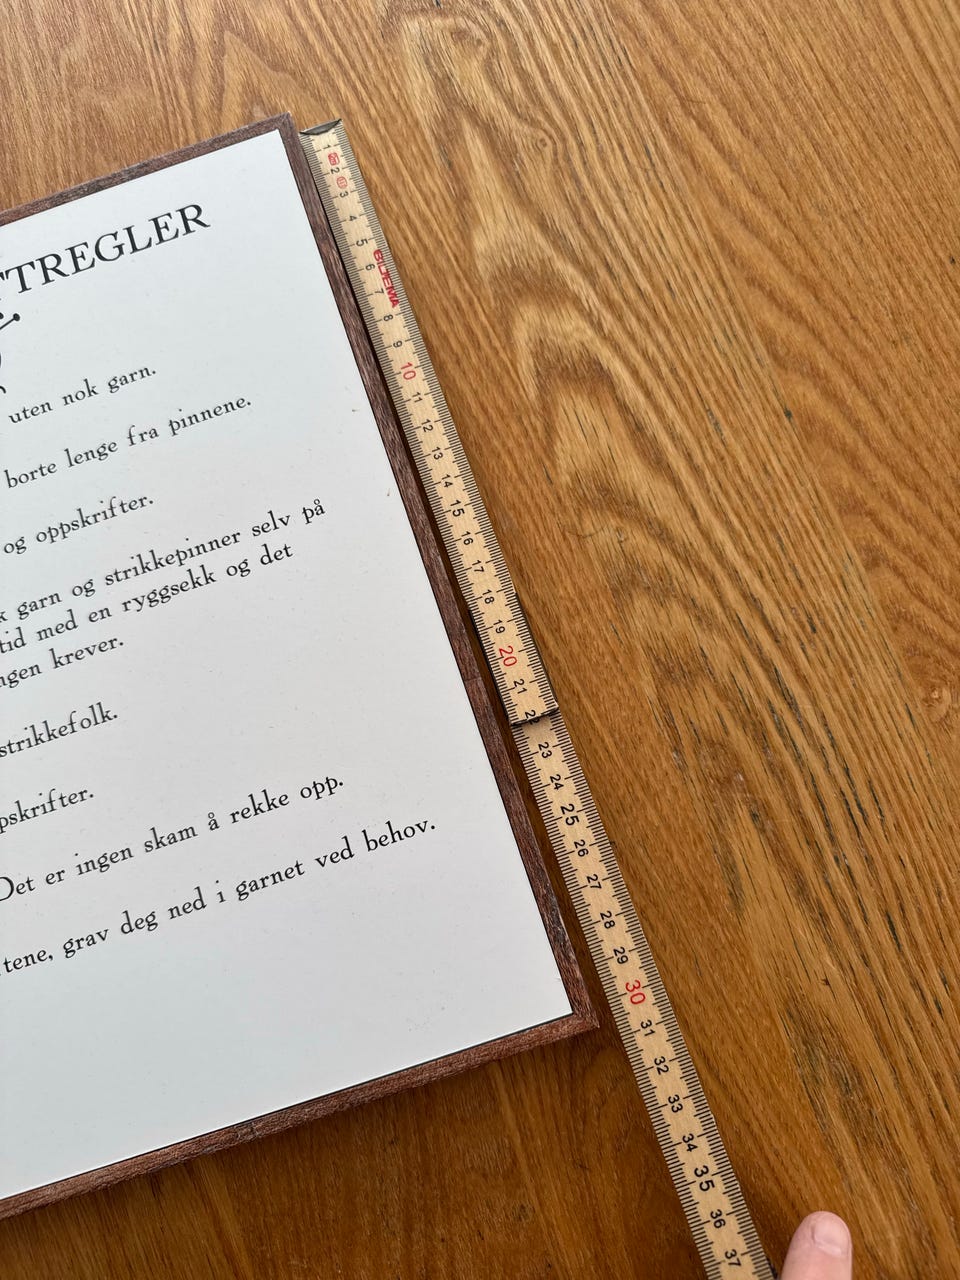 TTREGLER
uten nok garn.
borte lenge fra pinnene.
og oppskrifter.
k garn og strikkepinner selv på
tid med en ryggsekk og det
ngen krever.
strikkefolk.
pskrifter.
Det er ingen skam å rekke opp.
tene, grav deg ned i garnet ved behov.
BILTEMA
1
2
3
4
5
6
7
8
9
10
11
12
13
14
15
16
17
18
19
20
21
22
23
24
25
26
27
28
29
30
31
32
33
34
35
36
37